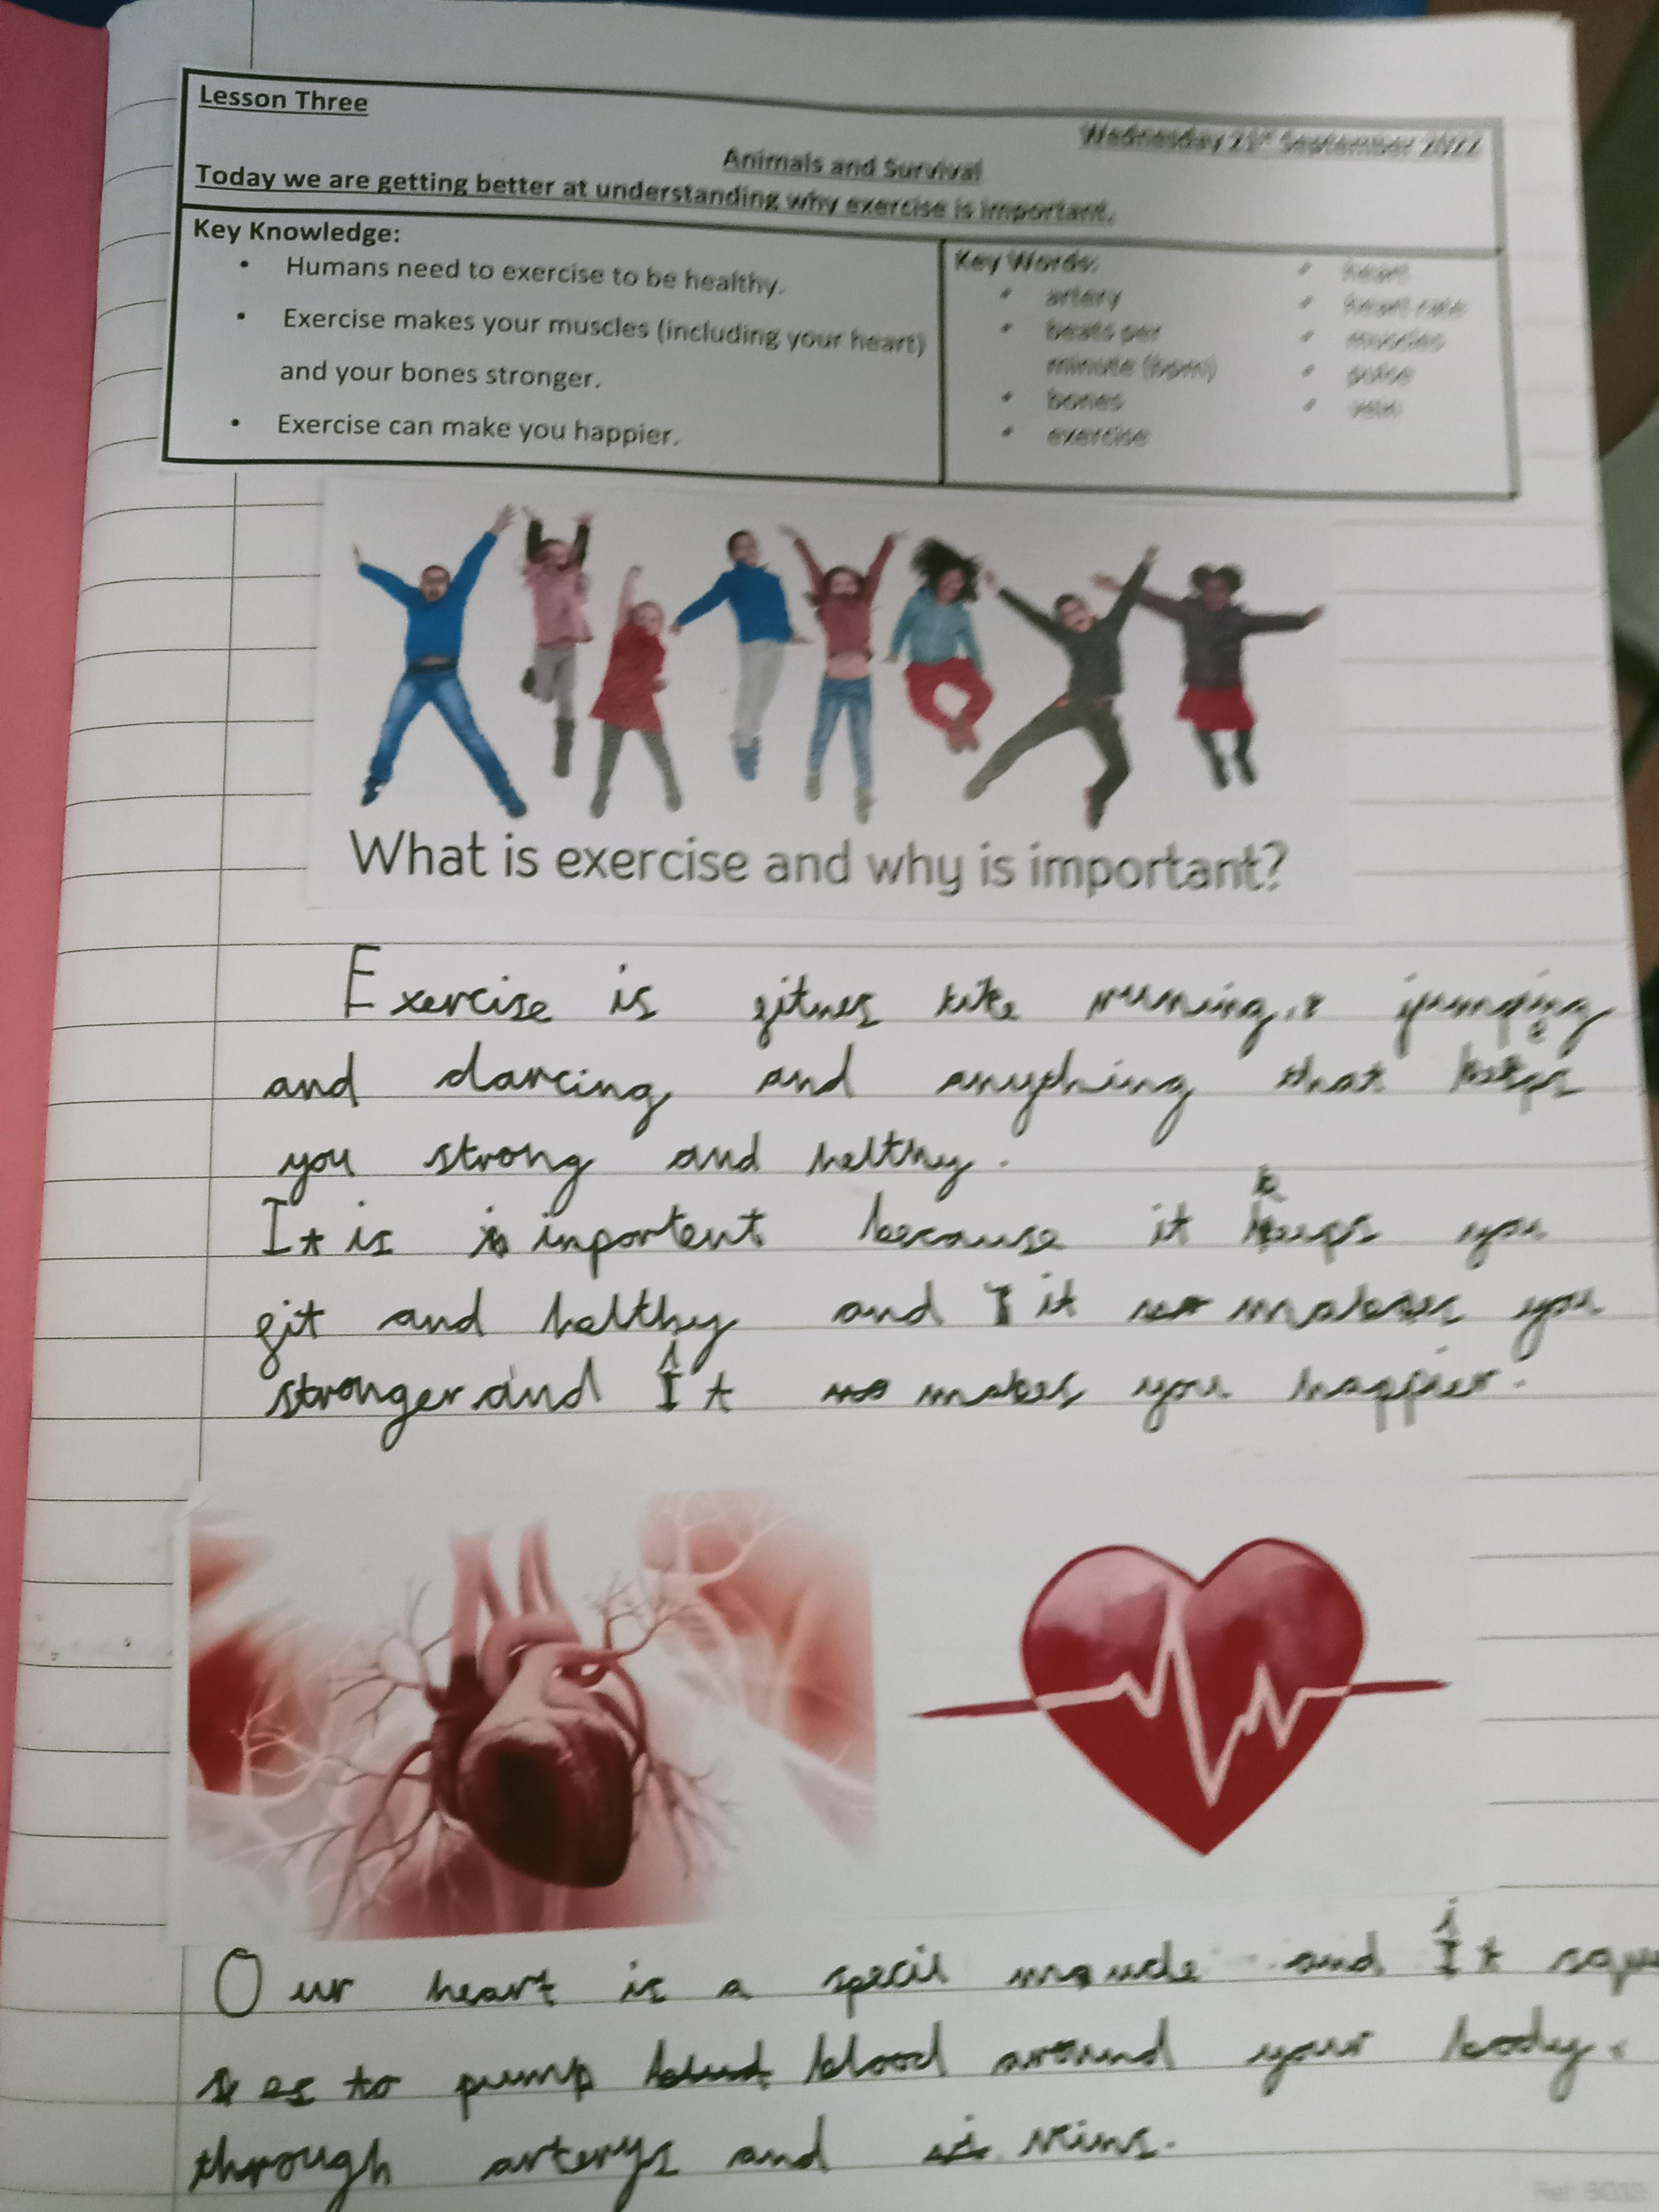 Lesson Three
Wednesday 21st September 2022
Animals and Survival
Today we are getting better at understanding why exercise is important.
Key Knowledge:
• Humans need to exercise to be healthy.
• Exercise makes your muscles (including your heart)
and your bones stronger.
• Exercise can make you happier.
Key Words:
• artery
• beats per
minute (bpm)
• bones
• exercise
• heart
• heart rate
• muscles
• pulse
• vein
What is exercise and why is important?
Exercise is fitnes like runing, jumping
and dancing and anything that keeps
you strong and helthy.
It is inportent because it keeps you
fit and helthy and it makes you
stronger and it makes you happier.
Our heart is a specil and it
es to pump blood around your body.
through arterys and